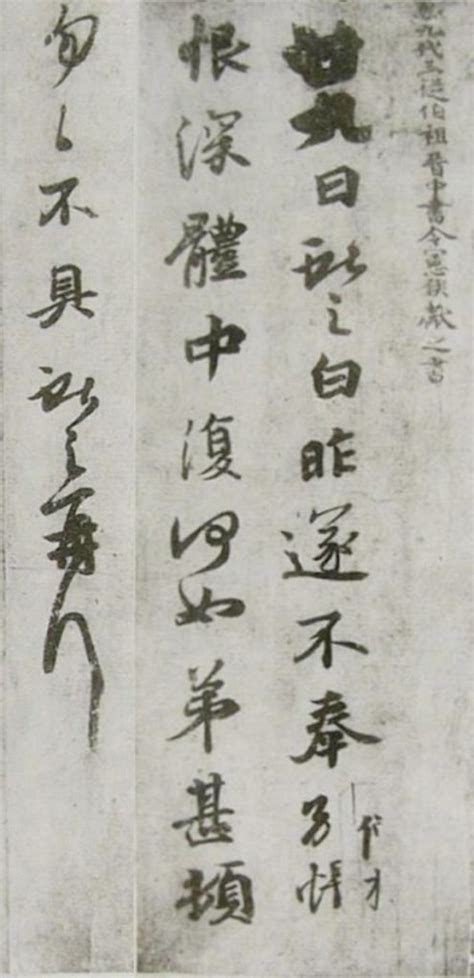 九代三從伯祖晉中書令憲侯獻之書
廿九日獻之白昨遂不奉別悵
恨深體中復何如弟甚頓
勿々不具獻之再拜